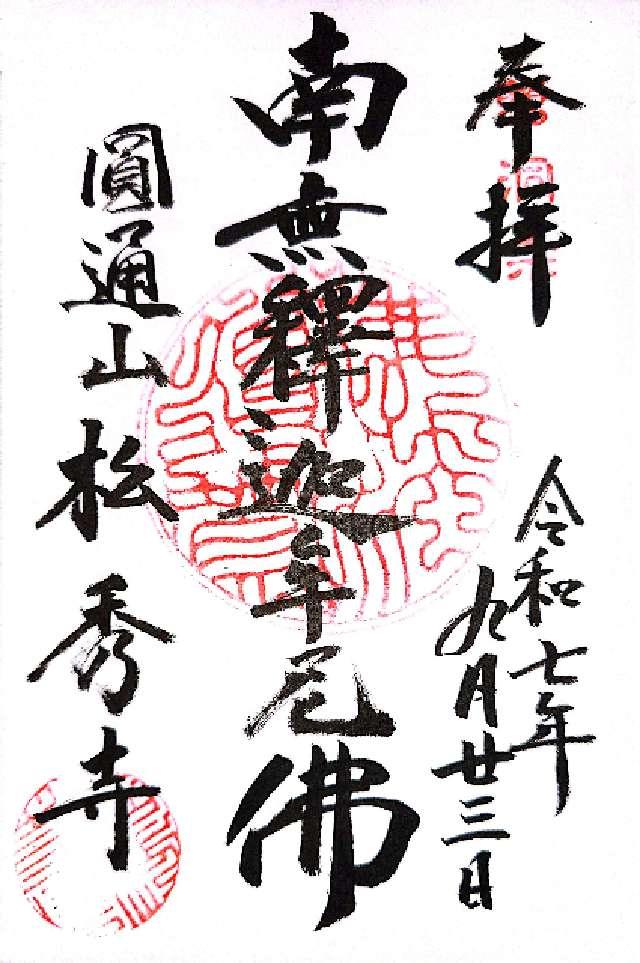 奉拝
令和七年
九月廿三日
南無釋迦牟尼佛
圓通山松秀寺